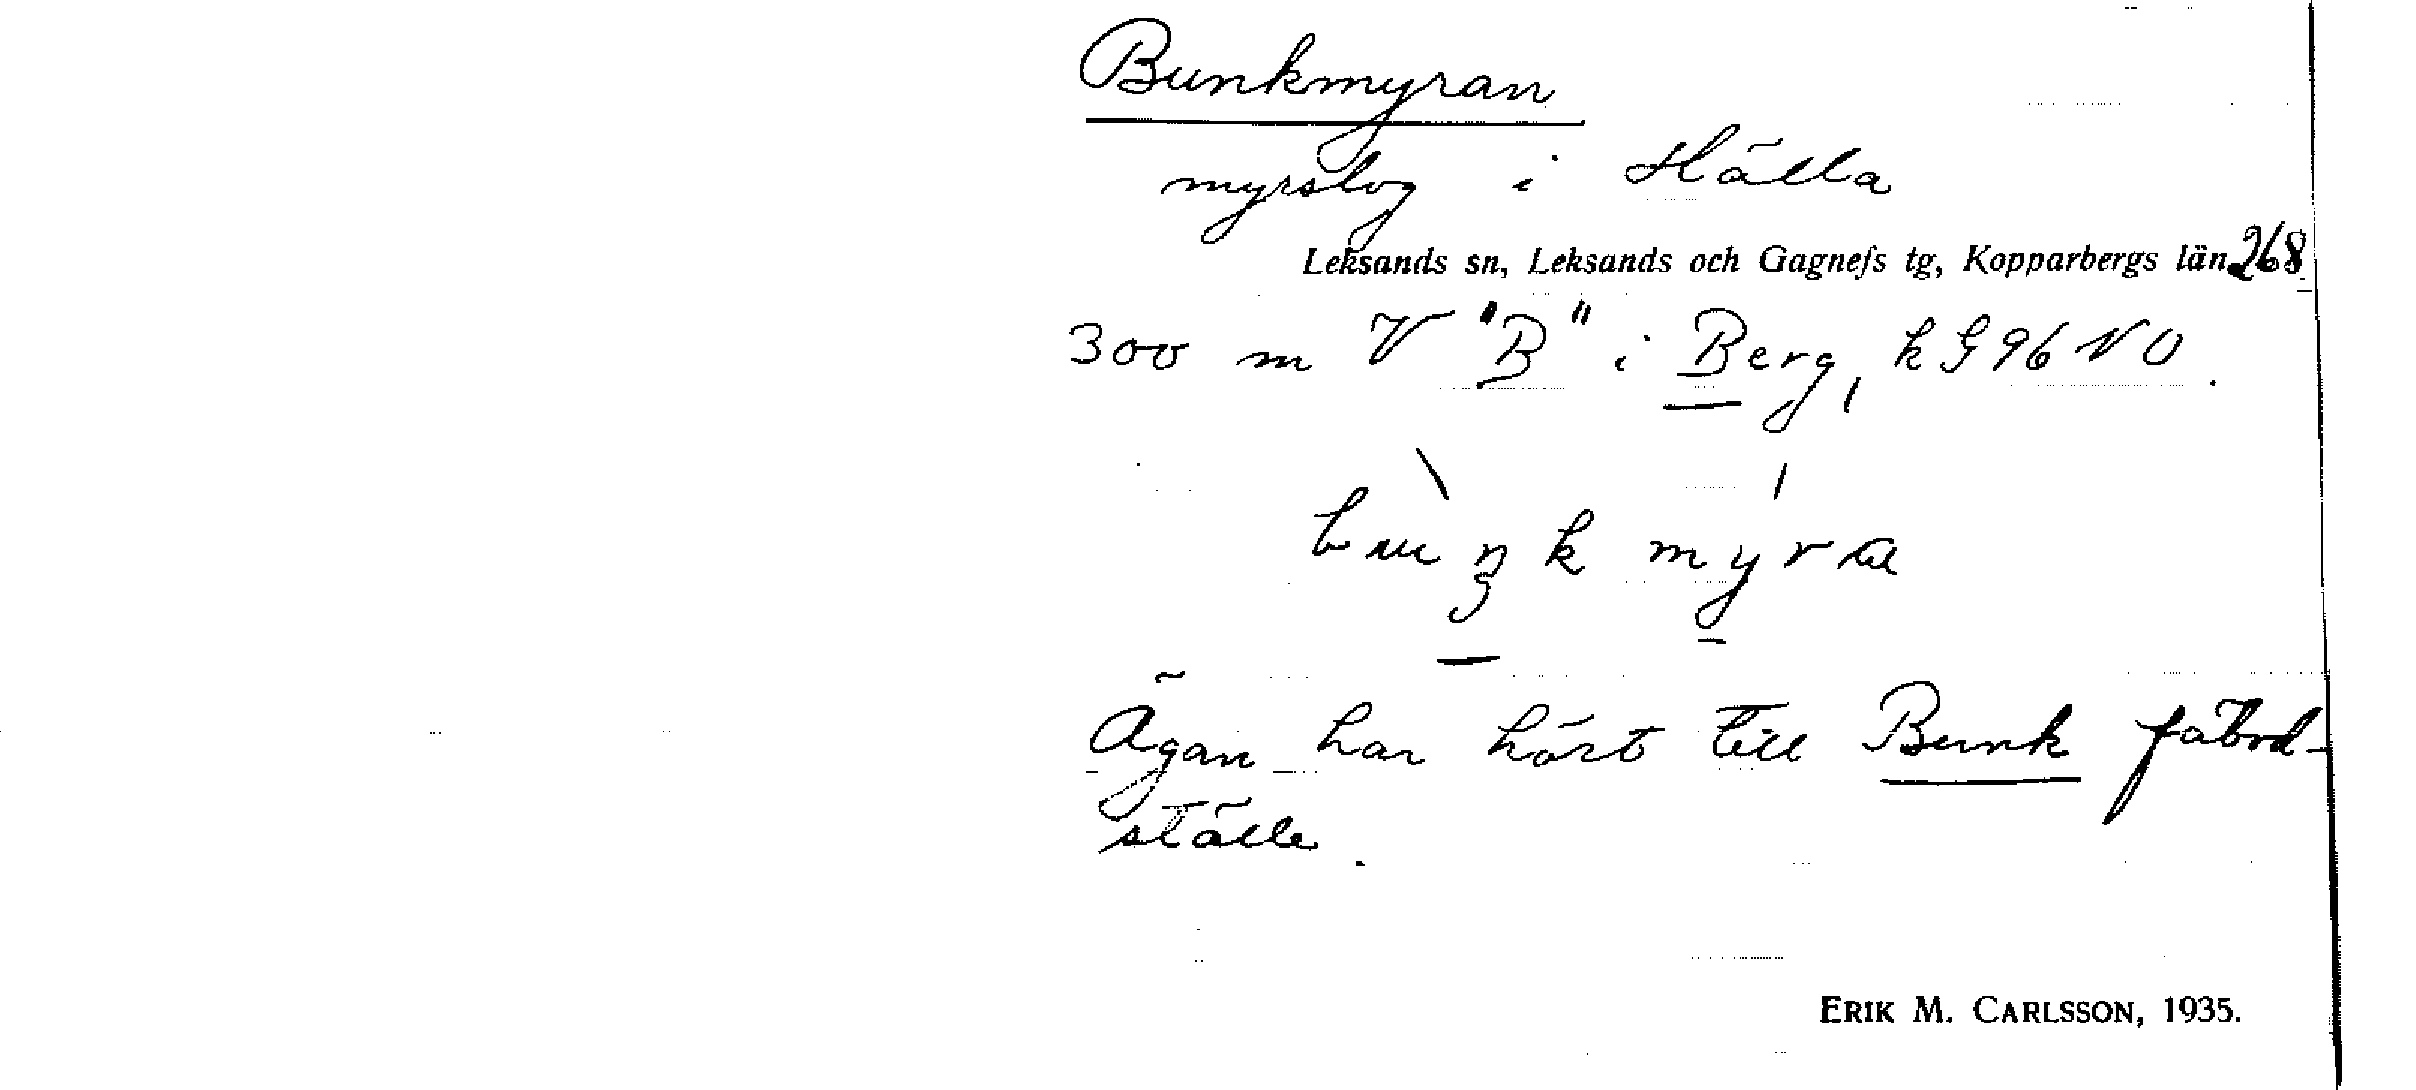 Bunkmyran
myrslog i Hälla
Leksands sn, Leksands och Gagnefs tg, Kopparbergs län 268
300 m V "B" i Berg, k G 96 NO.
buŋkmyra
Ägan har hört till Bunk fäbod-
ställe.
ERIK M. CARLSSON, 1935.